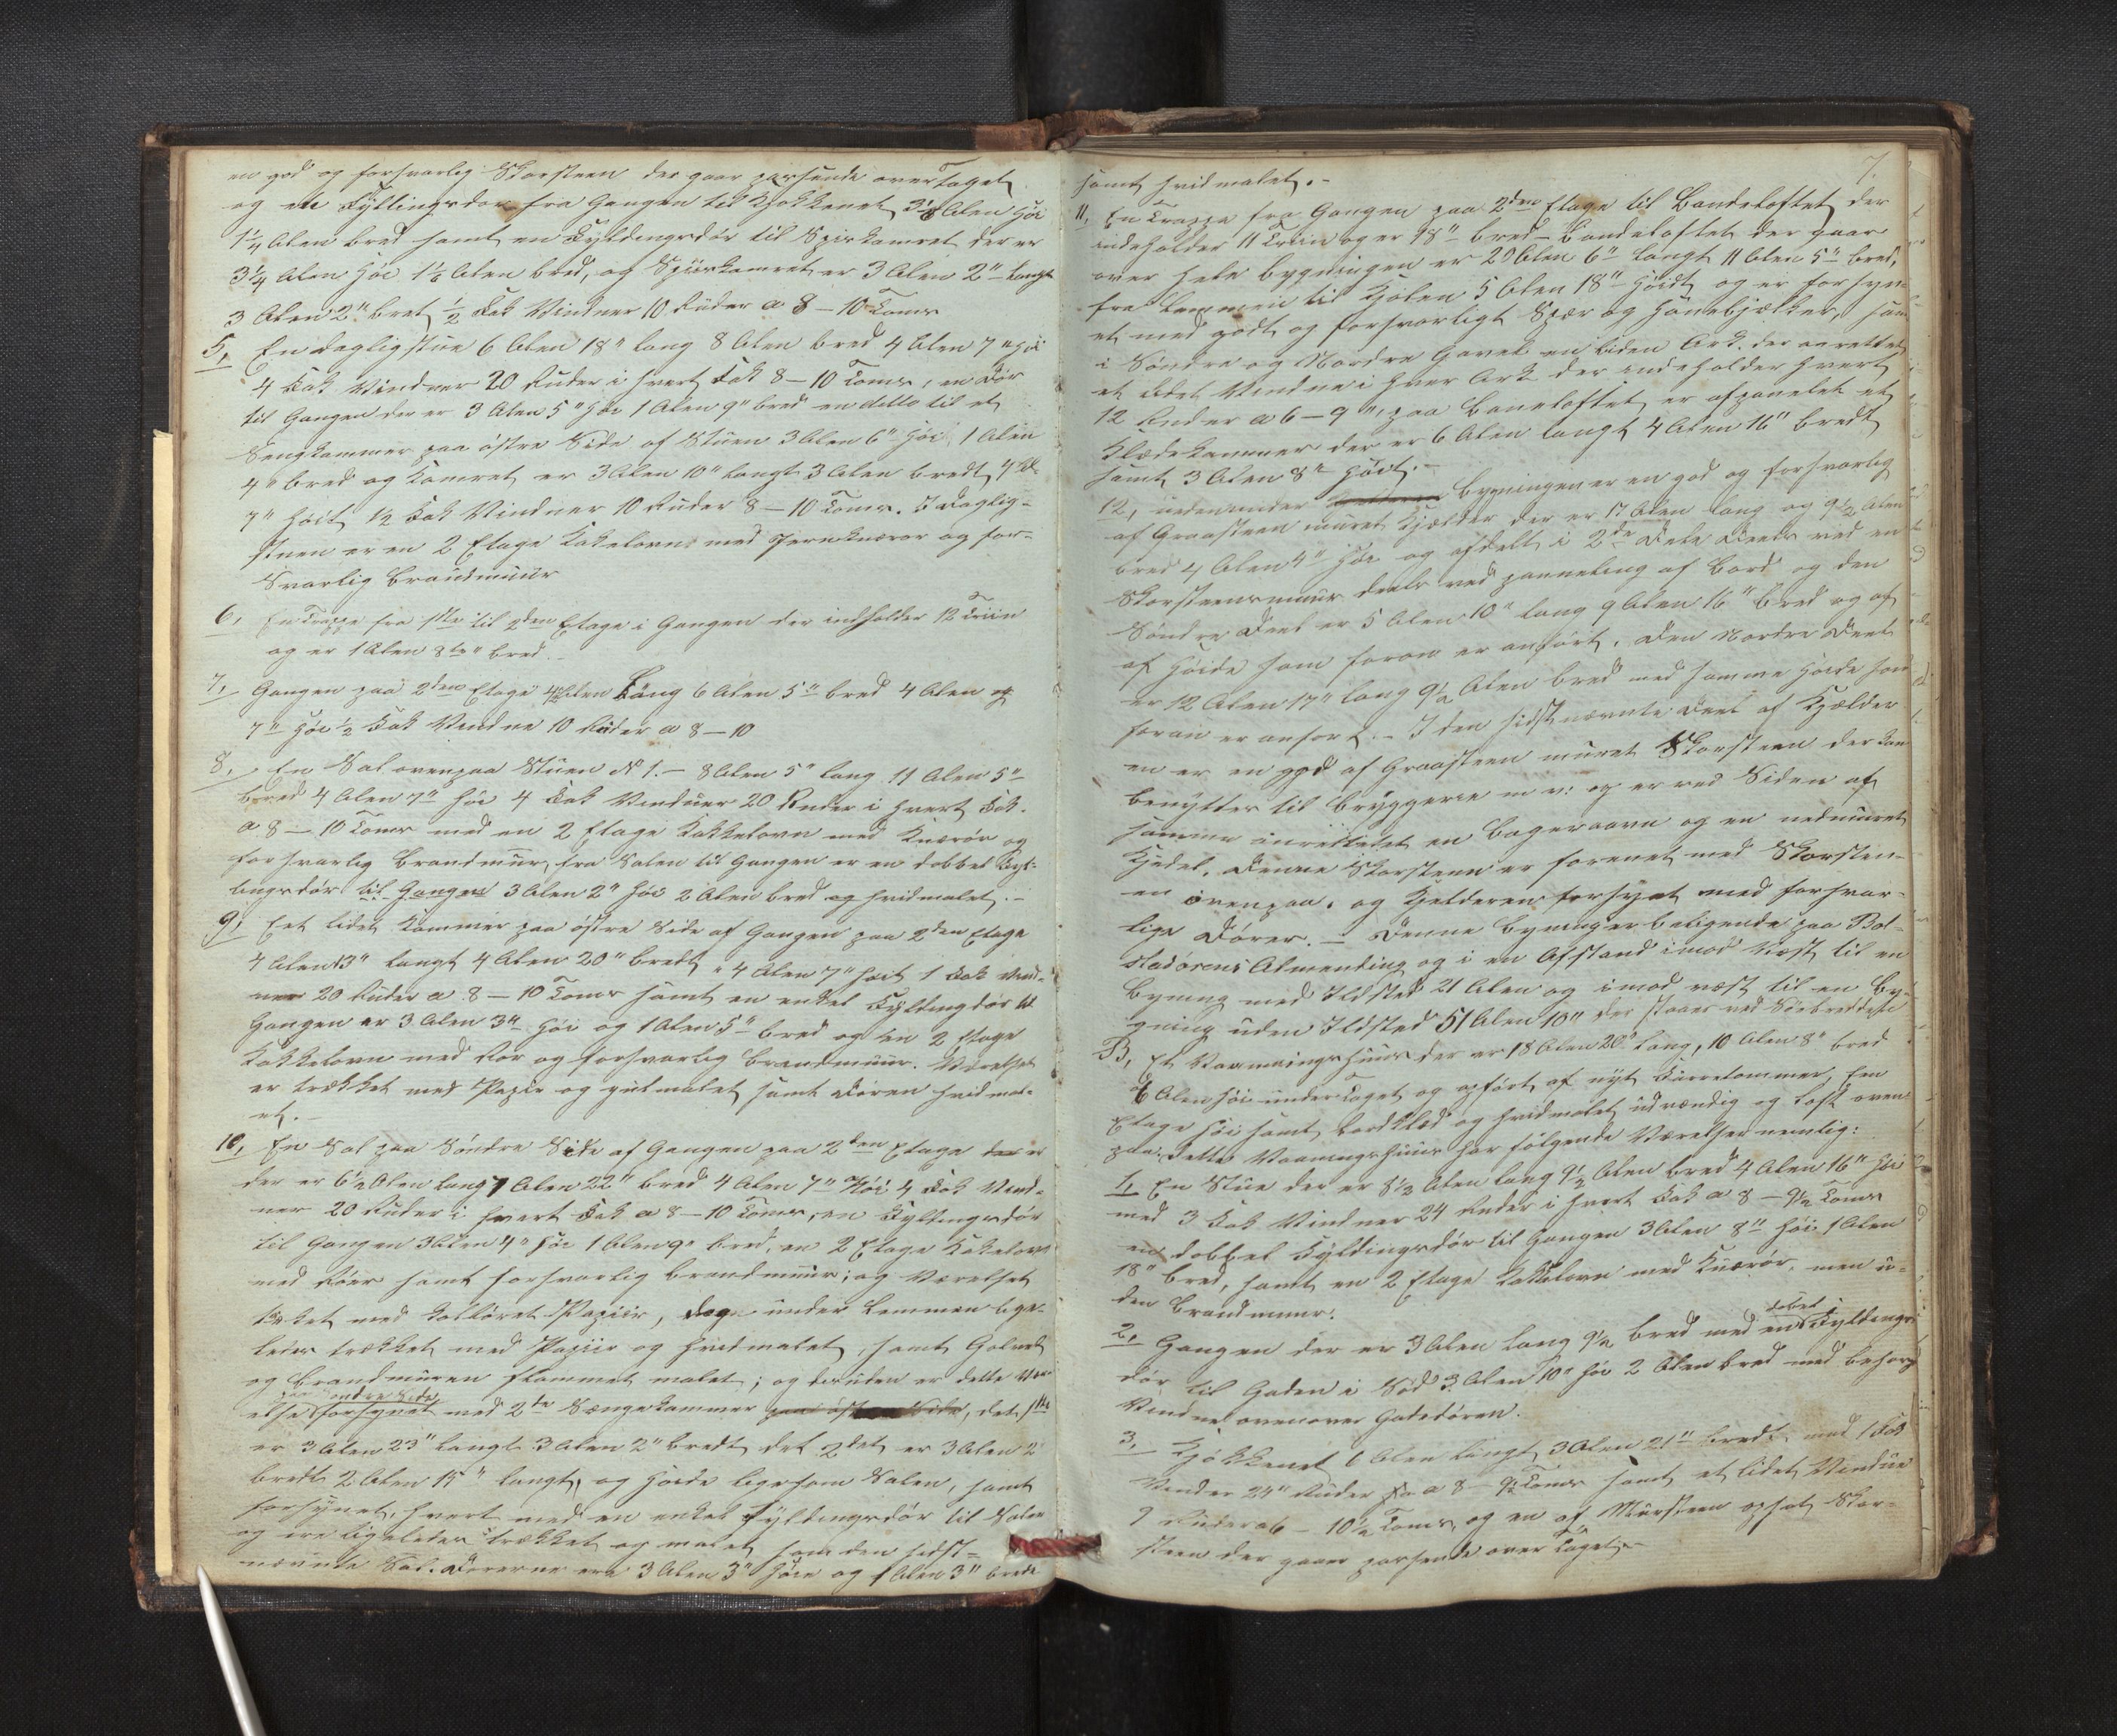 en god og forsvarlig Skorsteen der gaar passende over Taget
og en Fyllingsdør fra Gangen til Kjøkkenet 3⅛ Alen høi
1¼ Alen bred samt en Fyldingsdør til Spiskamret der er
3¼ Alen høi 1⅛ Alen bred, og Spiiskamret er 3 Alen 2" langt
3 Alen 2" bret ½ Fak Vinduer 10 Ruder a 8 – 10 Toms
5, En dagligstue 6 Alen 18" lang 8 Alen bred 4 Alen 7" høi
4 Fak Vinduer 20 Ruder i hvert Fak 8 – 10 Toms, en Dør
til Gangen der er 3 Alen 5" høi 1 Alen 9" bred en ditto til et
Sengkammer paa østre Side af Stuen 3 Alen 6" høi 1 Alen
4" bred og Kamret er 3 Alen 10" langt 3 Alen bredt 4 Al.
7" høit ½ Fak Vinduer 10 Ruder 8 – 10 Toms. I daglig-
stuen er en 2 Etage Kakelovn med Jernknærør og for-
svarlig Brandmuur
6, En Trappe fra 1ste til 2den Etage i Gangen der indholder 12 Triin
og er 1 Alen 8te" bred. –
7, Gangen paa 2den Etage 4½ Alen Lang 6 Alen 5" bred 4 Alen og
7" høi ½ Fak Vindue 10 Ruder a 8 – 10
8, En Sal ovenpaa Stuen N 1. – 8 Alen 5" lang 11 Alen 5"
bred 4 Alen 7" høi 4 Fak Vinduer 20 Ruder i hvert Fak.
a 8 – 10 Toms med en 2 Etage Kakkelovn med Knærør og
forsvarlig Brandmuur, fra Salen til Gangen er en dobbel Fyl-
lingsdør til Gangen 3 Alen 2" høi 2 Alen bred og hvidmalet. –
9, Eet lidet Kammer paa østre Side af Gangen paa 2den Etage
4 Alen 13" langt 4 Alen 20" bredt, 4 Alen 7" høit 1 Fak Vind-
uer 20 Ruder a 8 – 10 Toms samt en enkel Fyldingdør til
Gangen er 3 Alen 3" høi og 1 Alen 5" bred og en 2 Etage
Kakkelovn med Rør og forsvarlig Brandmuur. Værelset
er trækket med Papir og gulmalet samt Døren hvidmal-
et. –
10, En Sal paa Søndre Side af Gangen paa 2den Etage der er
der er 6½ Alen lang 7 Alen 22" bred 4 Alen 7" høi 4 Fak Vind-
uer 20 Ruder i hvert Fak a 8 – 10 Toms, en Fyldingsdør
til Gangen 3 Alen 4" høi 1 Alen 9" bred, en 2 Etage Kakelovn
med Røer samt forsvarlig Brandmuur; og Værelset
trækket med Kolløret Papiir, døge under Lemmen lige-
ledes trækket med Papiir og hvidmalet, samt Gulvet
og Brandmuren flammet malet; og desuden er dette Vær-
paa Søndre Side
else forsynet med 2de Sængekammer paa østre Side, det 1ste
er 3 Alen 23" langt 3 Alen 2" bredt det 2det er 3 Alen 2
bredt 2 Alen 15" langt, og Høide ligesom Salen, samt
forsynet, hvert med en enkel Fyldingsdør til Salen
og ere ligeledes trækket og malet som den sidst-
nævnte Sal. Dørerne ere 3 Alen 3" høie og 1 Alen 3" brede
7.
samt hvidmalet. –
11, En Trappe fra Gangen paa 2den Etage til Bandeloftet der
indeholder 11 Triin og er 18" bred – Bandeloftet der gaar
over hele bygningen er 20 Alen 6" langt 11 Alen 5" bred,
fra Lemmen til Kjølen 5 Alen 18" høidt og er forsyn-
et med godt og forsvarligt Spær og Hanebjælker, samt
i Søndre og Nordre Gavel en liden Ark. der anrettet
et lidet Vindue i hver Ark der indeholder hvert
12 Ruder a 6 – 9", paa Baneloftet er afpanelet et
Klædekammer der er 6 Alen langt 4 Alen 16" bredt
samt 3 Alen 8" høit. –
12, neden under Bygningen er en god og forsvarlig
af Graasteen muret Kjælder der er 17 Alen lang og 9½ Alen
bred 4 Alen 4" høi og afdelt i 2de Dele deels ved en
Skorsteensmuur deels ved panneling af Bord og den
Søndre Deel er 5 Alen 10" lang 9 Alen 16" bred og af
af Høide som foran er anført. Den Nordre Deel
er 12 Alen 17" lang 9½ Alen bred med samme Høide som
foran er anført. – I den sidstnævnte Deel af Kjælder-
en er en god af Graasteen muret Skorsteen der kan
benyttes til Bryggerie m v: og er ved Siden af
samme inrettetet en Bagerovn og en nedmuret
Kjedel. Denne Skorsteen er forenet med Skorsten-
en ovenpaa, og Kjelderen forsynt med forsvar-
lige Dører. – Denne Bygning er beligende paa Bol-
stadørens Almending og i en Afstand imod Vest til en
Bygning med Ildsted 21 Alen og imod vest til en By-
gning uden Ildsted 51 Alen 10" der staaer ved Søebredden
B, Et Vaaningshuus der er 18 Alen 20" lang, 10 Alen 8" bred
6 Alen høi under Taget og opført af nyt Furretømmer, Een
Etage høi samt bordklæd og hvidmalet udvændig og Loft oven-
paa. dette Vaaningshuus har følgende Værelser nemlig:
1, En Stue der er 8½ Alen lang 9½ Alen bred 4 Alen 16" høi
med 3 Fak Vinduer 24 Ruder i hvert Fak a 8 – 9½ Toms
en dobbel Fyldingsdør til Gangen 3 Alen 8" høi 1 Alen
18" bred, samt en 2 Etage Kakkelovn med Knærør, men u-
den Brandmuur.
dobel
2, Gangen der er 3 Alen lang 9½ bred med en Fyldings-
dør til Gaden i Sød 3 Alen 10" høi 2 Alen bred med behørig
Vindue ovenover Gatedøren.
3, Kjøkkenet 6 Alen langt 3 Alen 21" bredt med 1 Fak
Vinder 24" Ruder a 8 – 9½ Toms samt et lidet Vindue
9 Ruder a 6 – 10½ Toms, og en af Mursteen opsat Skor-
steen der gaaer passende over Taget. –